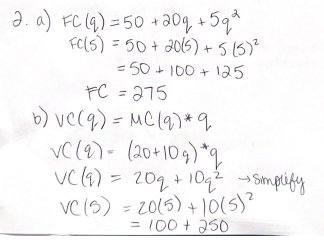 2. a) FC(q) = 50 + 20q + 5q²
FC(5) = 50 + 20(5) + 5(5)²
= 50 + 100 + 125
FC = 275
b) VC(q) = MC(q) * q
VC(q) = (20+10q) * q
VC(q) = 20q + 10q² → simplify
VC(5) = 20(5) + 10(5)²
= 100 + 250